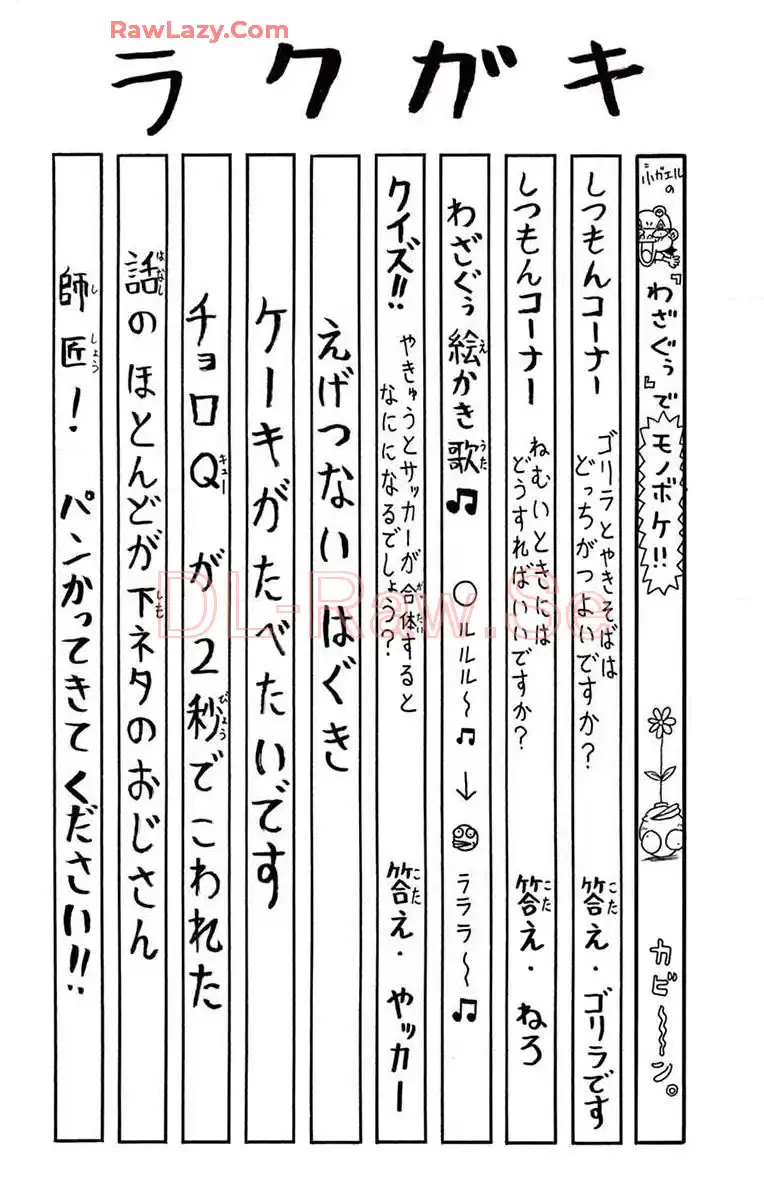 RawLazy.Com
ラクガキ
小ガエルの『わざぐぅ』でモノボケ!! カビ〜〜ン。
しつもんコーナー ゴリラとやきそばは どっちがつよいですか? 答え・ゴリラです
しつもんコーナー ねむいときには どうすればいいですか? 答え・ねろ
わざぐぅ絵かき歌♫ ○ルルル〜♫ → ラララ〜♫
クイズ!! やきゅうとサッカーが合体すると なにになるでしょう? 答え・やッカー
えげつないはぐき
ケーキがたべたいです
チョロQが2秒でこわれた
話のほとんどが下ネタのおじさん
師匠! パンかってきてください!!
DL-Raw.Se